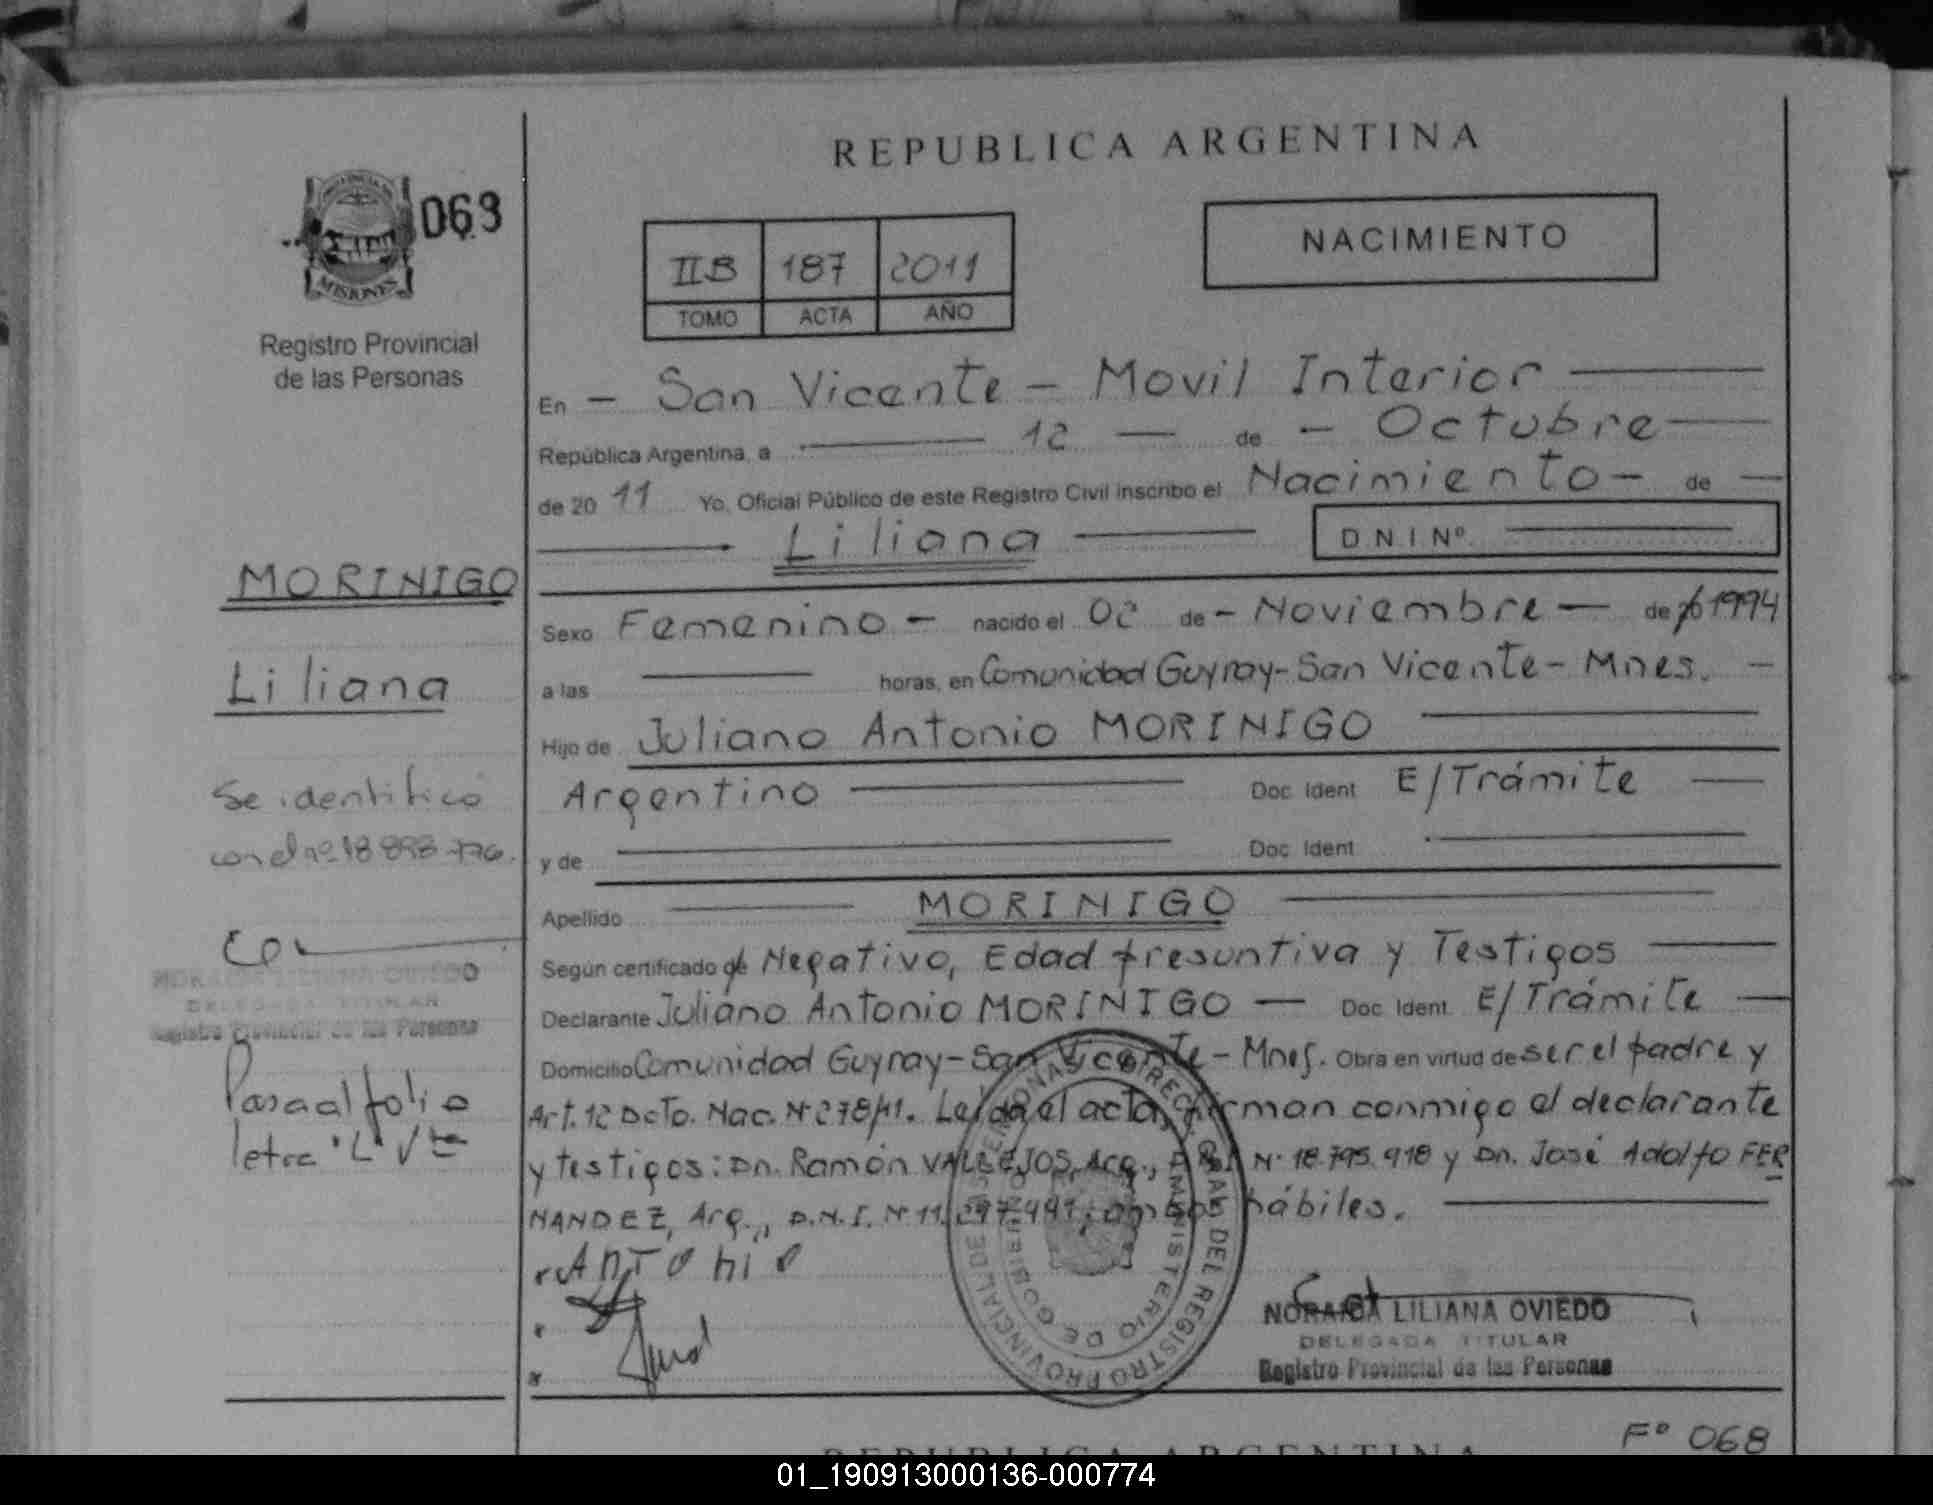 REPUBLICA ARGENTINA
PROVINCIA DE
MISIONES
069
Registro Provincial
de las Personas
IIB 187 2011
TOMO ACTA AÑO
NACIMIENTO
En – San Vicente – Movil Interior
República Argentina, a 12 — de – Octubre
de 20 11 Yo, Oficial Público de este Registro Civil inscribo el Nacimiento – de —
Liliana
D.N.I Nº
MORINIGO
Liliana
Sexo Femenino – nacido el 02 de – Noviembre — de 1994
a las horas, en Comunidad Guyray - San Vicente - Mnes. —
Hijo de Juliano Antonio MORINIGO
Argentino Doc. Ident E/Trámite
y de Doc. Ident
Apellido MORINIGO
Según certificado de Negativo, Edad presuntiva y Testigos
Declarante Juliano Antonio MORINIGO — Doc. Ident. E/Trámite
Domicilio Comunidad Guyray - San Vicente - Mnes. Obra en virtud de ser el padre y
Art. 12 Dcto. Nac. Nº 278/11. Leída el acta, firman conmigo el declarante
y testigos: Dn. Ramón VALLEJOS, Arg., D.N.I. Nº 18.795.918 y Dn. José Adolfo FER
NANDEZ, Arg., D.N.I. Nº 11.297.491, ambos hábiles.
Se identificó
con el nº 18 898 776.
NORAIDA LILIANA OVIEDO
DELEGADA TITULAR
Registro Provincial de las Personas
Pasa al folio
letra "L" Vte
ANTONIO
DIRECC. GRAL. DEL REGISTRO PROVINCIAL DE LAS PERSONAS
MINISTERIO DE GOBIERNO
NORAIDA LILIANA OVIEDO
DELEGADA TITULAR
Registro Provincial de las Personas
REPUBLICA ARGENTINA
Fº 068
01_190913000136-000774